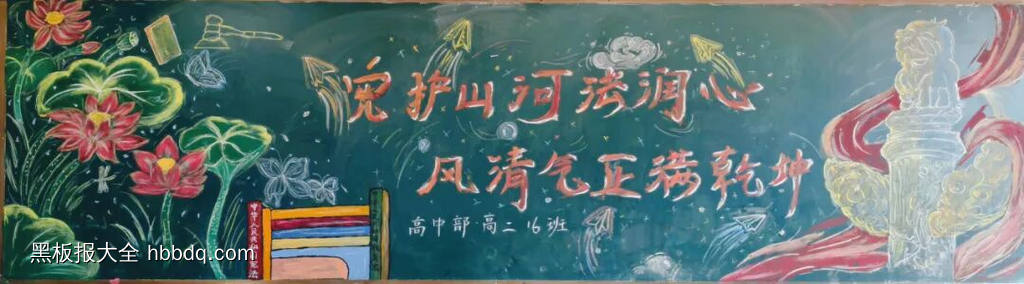 宪护山河法润心
风清气正满乾坤
高中部高二16班
中华人民共和国宪法
黑板报大全 hbbdq.com